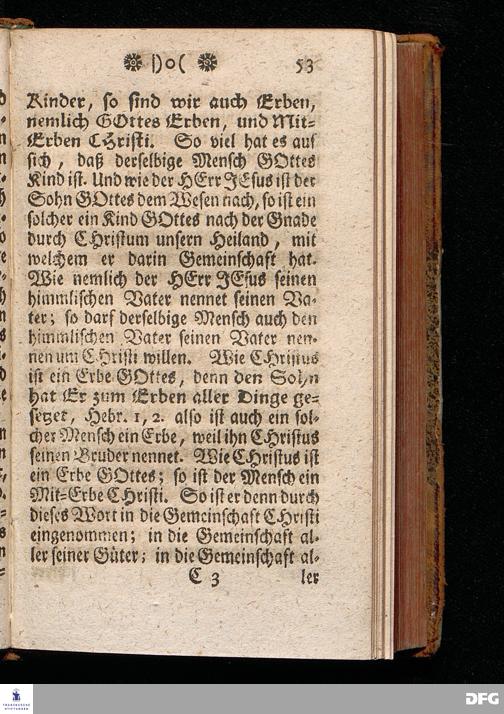 )o( 53
Kinder, so sind wir auch Erben,
nemlich GOttes Erben, und Mit-
Erben CHristi. So viel hat es auf
sich, daß derselbige Mensch GOttes
Kind ist. Und wie der HErr JEsus ist der
Sohn GOttes dem Wesen nach, so ist ein
solcher ein Kind GOttes nach der Gnade
durch CHristum unsern Heiland, mit
welchem er darin Gemeinschaft hat.
Wie nemlich der HErr JEsus seinen
himmlischen Vater nennet seinen Va-
ter; so darf derselbige Mensch auch den
himmlischen Vater seinen Vater nen-
nen um CHristi willen. Wie CHristus
ist ein Erbe GOttes, denn den Sohn
hat Er zum Erben aller Dinge ge-
setzet, Hebr. 1, 2. also ist auch ein sol-
cher Mensch ein Erbe, weil ihn CHristus
seinen Bruder nennet. Wie CHristus ist
ein Erbe GOttes; so ist der Mensch ein
Mit-Erbe CHristi. So ist er denn durch
dieses Wort in die Gemeinschaft CHristi
eingenommen; in die Gemeinschaft al-
ler seiner Güter; in die Gemeinschaft al-
C 3 ler
FRANCKESCHE
STIFTUNGEN
DFG